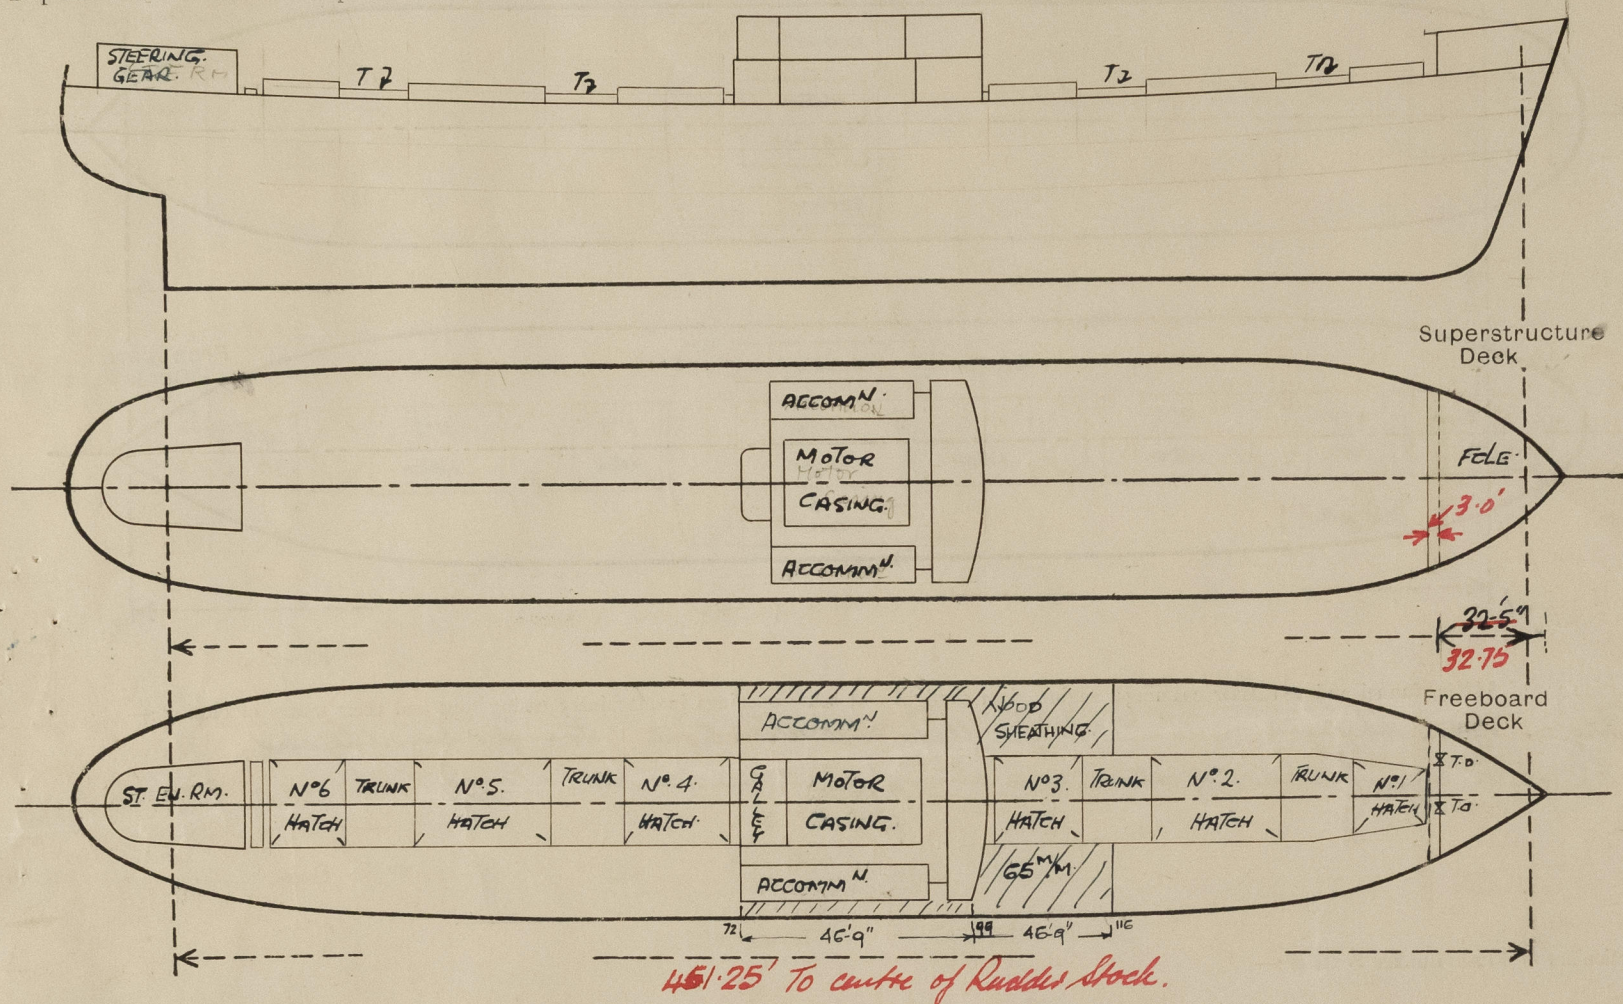 STEERING.
GEAR.
Superstructure
Deck
ACCOMMN.
MOTOR
CASING.
ACCOMMN.
FCLE.
3.0'
32-5"
32.75
Freeboard
Deck
ACCOMMN.
WOOD
SHEATHING.
ST. EN. RM.
No6
HATCH
TRUNK
No.5.
HATCH
TRUNK
No.4.
HATCH.
GALLEY
MOTOR
CASING.
No3.
HATCH
TRUNK
No.2.
HATCH
TRUNK
No.1
HATCH
T.O.
T.O.
ACCOMMN.
65M/M.
72
46'-9"
99
46'-9"
116
451.25' To centre of Rudder Stock.